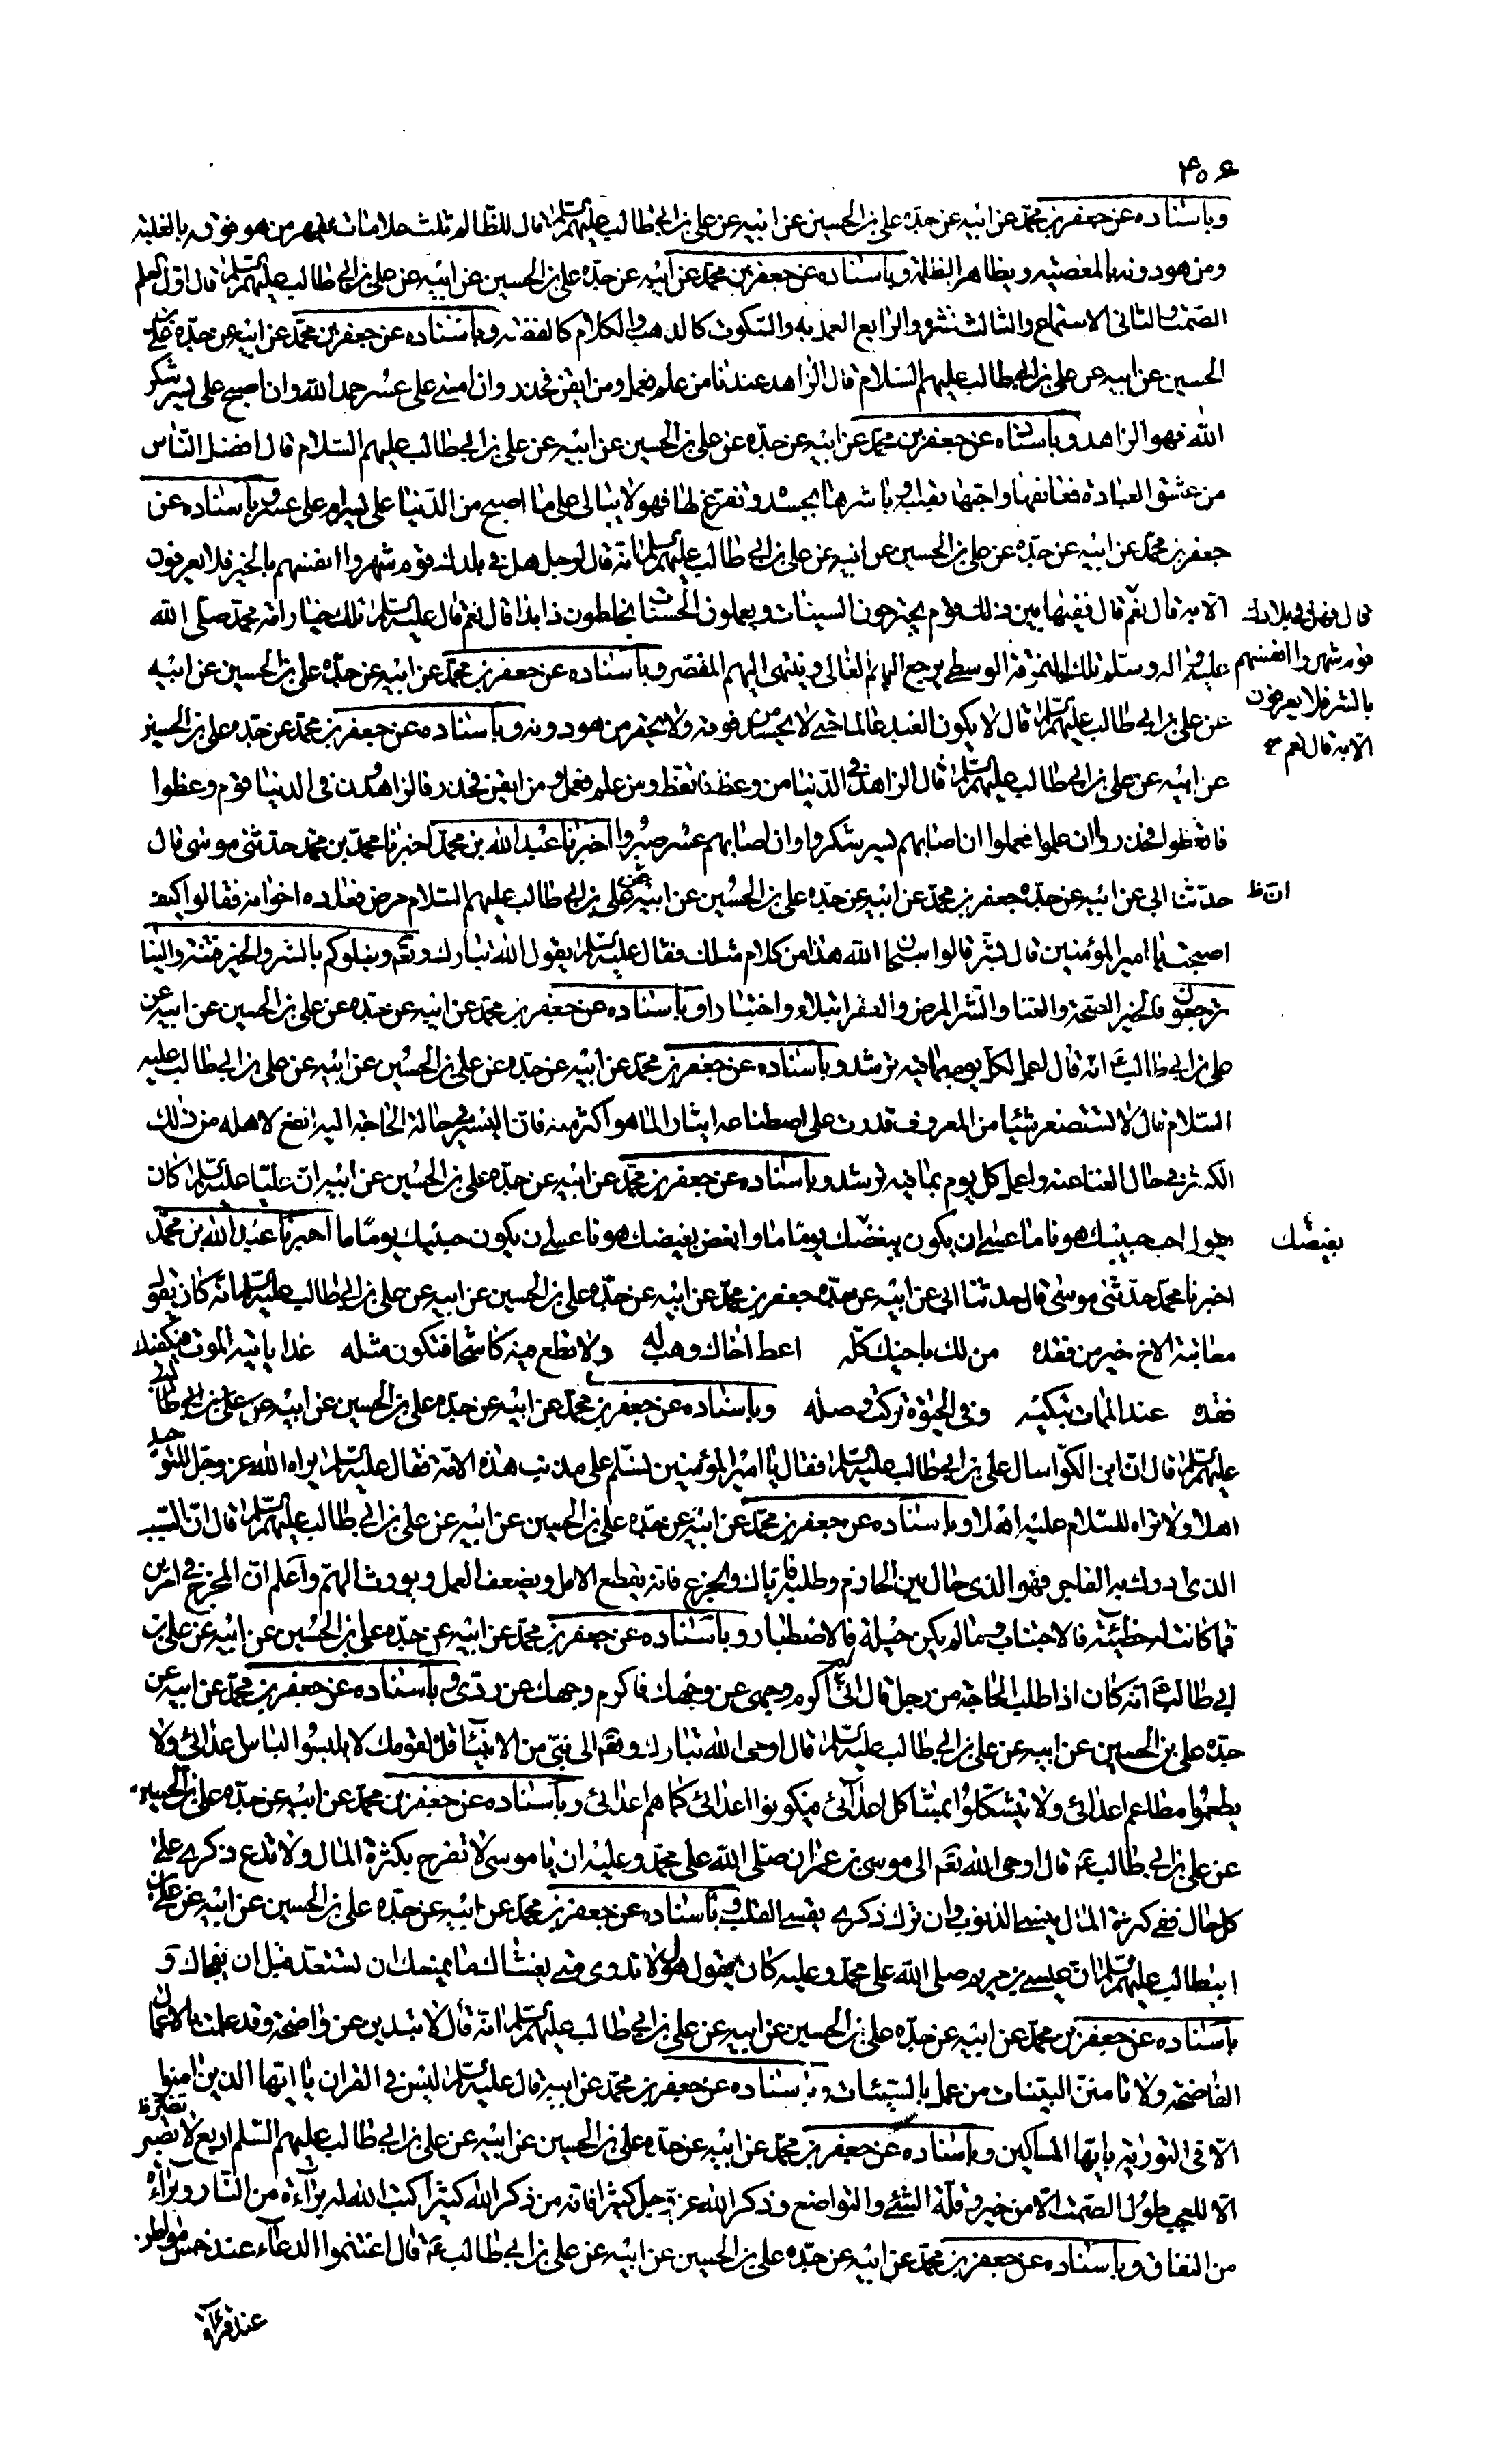 ٤٠٦
وباسناده عن جعفر بن محمد عن ابيه عن جده علي بن الحسين عن ابيه عن علي بن ابي طالب عليهم السلام قال للظالم ثلث علامات يقهر من هو فوقه بالغلبة
ومن هو دونه بالمعصيه ويظاهر الظلمة وباسناده عن جعفر بن محمد عن ابيه عن جده علي بن الحسين عن ابيه عن علي بن ابي طالب عليهم السلام قال اول العلم
الصمت والثاني الاستماع والثالث نشره والرابع العمل به والسكوت كالذهب والكلام كالفضة وباسناده عن جعفر بن محمد عن ابيه عن جده علي بن
الحسين عن ابيه عن علي بن ابي طالب عليهم السلام قال الزاهد عندنا من علم فعمل ومن ايقن فحذر وان امسى على عسر حمد الله وان اصبح على يسر شكر
الله فهو الزاهد وباسناده عن جعفر بن محمد عن ابيه عن جده عن علي بن الحسين عن ابيه عن علي بن ابي طالب عليهم السلام قال افضل الناس
من عشق العبادة فعانقها واحبها بقلبه وباشرها بجسده وتفرغ لها فهو لا يبالى على ما اصبح من الدنيا على يسر ام على عسر وباسناده عن
جعفر بن محمد عن ابيه عن جده عن علي بن الحسين عن ابيه عن علي بن ابي طالب عليهم السلام انه قال لرجل هل في بلدك قوم شهروا انفسهم بالخير فلا يعرفون
الا به قال نعم قال ففيها بين ذلك قوم يجترحون السيئات ويعملون الحسنات يخلطون ذا بذا قال نعم قال عليه السلام تلك خيار امة محمد صلى الله
عليه واله وسلم تلك النمرقة الوسطى يرجع اليهم الغالى وينتهى اليهم المقصر وباسناده عن جعفر بن محمد عن ابيه عن جده علي بن الحسين عن ابيه
عن علي بن ابي طالب عليهم السلام قال لا يكون العبد عالما حتى لا يحسد من فوقه ولا يحقر من هو دونه وباسناده عن جعفر بن محمد عن جده علي بن الحسين
عن ابيه عن علي بن ابي طالب عليهم السلام قال الزاهد في الدنيا من وعظ فاتعظ ومن علم فعمل ومن ايقن فحذر فالزاهدون في الدنيا قوم وعظوا
فاتعظوا فحذروا وان علموا فعملوا ان اصابهم يسر شكروا وان اصابهم عسر صبروا اخبرنا عبد الله بن محمد اخبرنا محمد بن محمد حدثنى موسى قال
حدثنا ابي عن ابيه عن جده جعفر بن محمد عن ابيه عن جده علي بن الحسين عن ابيه عن علي بن ابي طالب عليهم السلام مرض فعاده اخوانه فقالوا كيف
اصبحت يا امير المؤمنين قال بشر قالوا سبحان الله هذا من كلام مثلك فقال عليه السلام يقول الله تبارك وتعالى ونبلوكم بالشر والخير فتنة والينا
ترجعون فالخير الصحة والغنا والشر المرض والفقر ابتلاء واختبارا وباسناده عن جعفر بن محمد عن ابيه عن جده عن علي بن الحسين عن ابيه عن
علي بن ابي طالب ع انه قال اعمل لكل يوم بما فيه ترشد وباسناده عن جعفر بن محمد عن ابيه عن جده عن علي بن الحسين عن ابيه عن علي بن ابي طالب عليه
السلام قال لا تستصغر شيئا من المعروف قدرت على اصطناعه ايثارا لما هو اكثر منه فان اليسير في حالة الحاجة اليه انفع لاهله من ذلك
الكثير في حال الغنا عنه واعمل كل يوم بما فيه ترشد وباسناده عن جعفر بن محمد عن ابيه عن جده علي بن الحسين عن ابيه ان عليا عليه السلام كان
يقول احب حبيبك هونا ما عسى ان يكون بغيضك يوما ما وابغض بغيضك هونا عسى ان يكون حبيبك يوما ما اخبرنا عبد الله بن محمد
اخبرنا محمد حدثنى موسى قال حدثنا ابي عن ابيه عن جده جعفر بن محمد عن ابيه عن جده علي بن الحسين عن ابيه عن علي بن ابي طالب عليه السلام انه كان يقول
معاتبة الاخ خير من فقده من لك باخيك كله اعط اخاك وهب له ولا تطع فيه كاشحا فتكون مثله غدا ياتيه الموت فيكفيك
فقده عند الممات تبكيه وفى الحيوة تركت وصله وباسناده عن جعفر بن محمد عن ابيه عن جده علي بن الحسين عن ابيه عن علي بن ابي طالب
عليهم السلام قال ان ابن الكوا سال علي بن ابي طالب عليه السلام فقال يا امير المؤمنين نسلم على مذنب هذه الامة فقال عليه السلام يراه الله عز وجل للتوحيد
اهلا ولا نراه للسلام عليه اهلا وباسناده عن جعفر بن محمد عن ابيه عن جده علي بن الحسين عن ابيه عن علي بن ابي طالب عليهم السلام قال ان السبب
الذى ادرك به العاجز فهو الذى حال بين الحازم وطلبته فاياك والجزع فانه يقطع الامل ويضعف العمل ويورث الهم واعلم ان المخرج في امرين
فما كانت له حيلة فالاحتيال وما لم يكن حيلة فالاصطبار وباسناده عن جعفر بن محمد عن ابيه عن جده علي بن الحسين عن ابيه عن علي بن
ابي طالب ع انه كان اذا طلب الحاجة من رجل قال انى لم اكرم وجهى عن وجهك فاكرم وجهك عن ردى وباسناده عن جعفر بن محمد عن ابيه عن
جده علي بن الحسين عن ابيه عن علي بن ابي طالب عليه السلام قال اوحى الله تبارك وتعالى الى نبى من الانبياء قل لقومك لا يلبسوا لباس عدائى ولا
يطعموا مطاعم اعدائى ولا يتشكلوا بمشاكل اعدائى فيكونوا اعدائى كما هم اعدائى وباسناده عن جعفر بن محمد عن ابيه عن جده علي بن الحسين
عن علي بن ابي طالب ع قال اوحى الله تعالى الى موسى بن عمران صلى الله على محمد وعليه ان يا موسى لا تفرح بكثرة المال ولا تدع ذكرى على
كل حال ففى كثرة المال ينسى الذنوب وان ترك ذكرى يقسى القلب وباسناده عن جعفر بن محمد عن ابيه عن جده علي بن الحسين عن ابيه عن علي بن
ابيطالب عليهم السلام ان عيسى بن مريم صلى الله على محمد وعليه كان يقول هول لا تدرى متى يغشاك ما يمنعك ان تستعد قبل ان يفجاك و
باسناده عن جعفر بن محمد عن ابيه عن جده علي بن الحسين عن ابيه عن علي بن ابي طالب عليهم السلام انه قال لا تبدين عن واضحة وقد عملت بالاعمال
الفاضحة ولا تامنن البيات من عمل بالسيئات وباسناده عن جعفر بن محمد عن ابيه قال عليه السلام ليس في القران يا ايها الذين امنوا
الا فى التورية يا ايها المساكين وباسناده عن جعفر بن محمد عن ابيه عن جده علي بن الحسين عن ابيه عن علي بن ابي طالب عليهم السلم اربع لا تصير
الا للعجب طول الصمت الا من خير وقلة الشئ والتواضع وذكر الله عز وجل كثيرا فانه من ذكر الله كثيرا كتب الله له براءة من النار وبراءة
من النفاق وباسناده عن جعفر بن محمد عن ابيه عن جده علي بن الحسين عن ابيه عن علي بن ابي طالب ع قال اغتنموا الدعاء عند خمس مواطن
عند قرائة
قال فهل في بلادك
قوم شهروا انفسهم
بالشر فلا يعرفون
الا به قال نعم صح
ان ظ
بغيضك